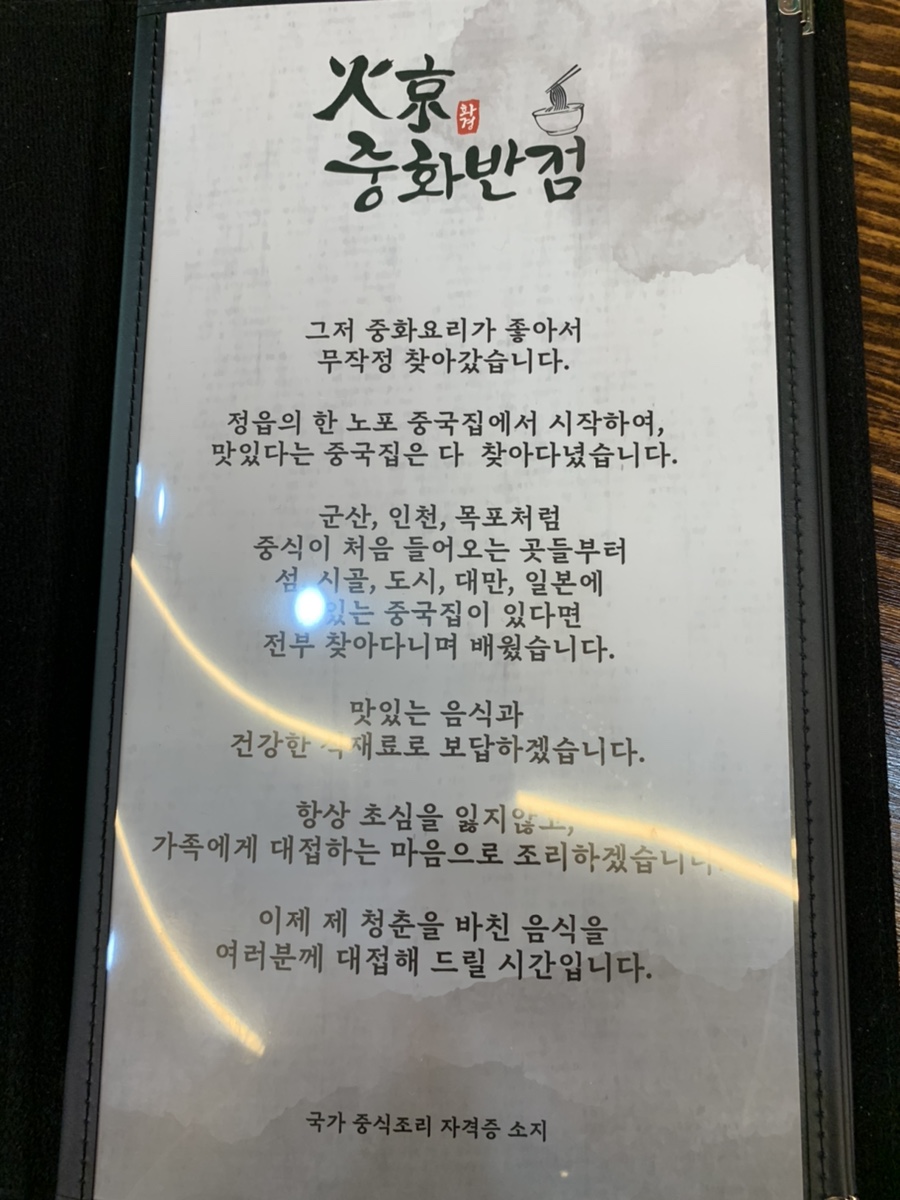 火京
화경
중화반점
그저 중화요리가 좋아서
무작정 찾아갔습니다.
정읍의 한 노포 중국집에서 시작하여,
맛있다는 중국집은 다 찾아다녔습니다.
군산, 인천, 목포처럼
중식이 처음 들어오는 곳들부터
섬, 시골, 도시, 대만, 일본에
중국집이 있다면
전부 찾아다니며 배웠습니다.
맛있는 음식과
건강한 식재료로 보답하겠습니다.
항상 초심을 잃지않고,
가족에게 대접하는 마음으로 조리하겠습니다.
이제 제 청춘을 바친 음식을
여러분께 대접해 드릴 시간입니다.
국가 중식조리 자격증 소지